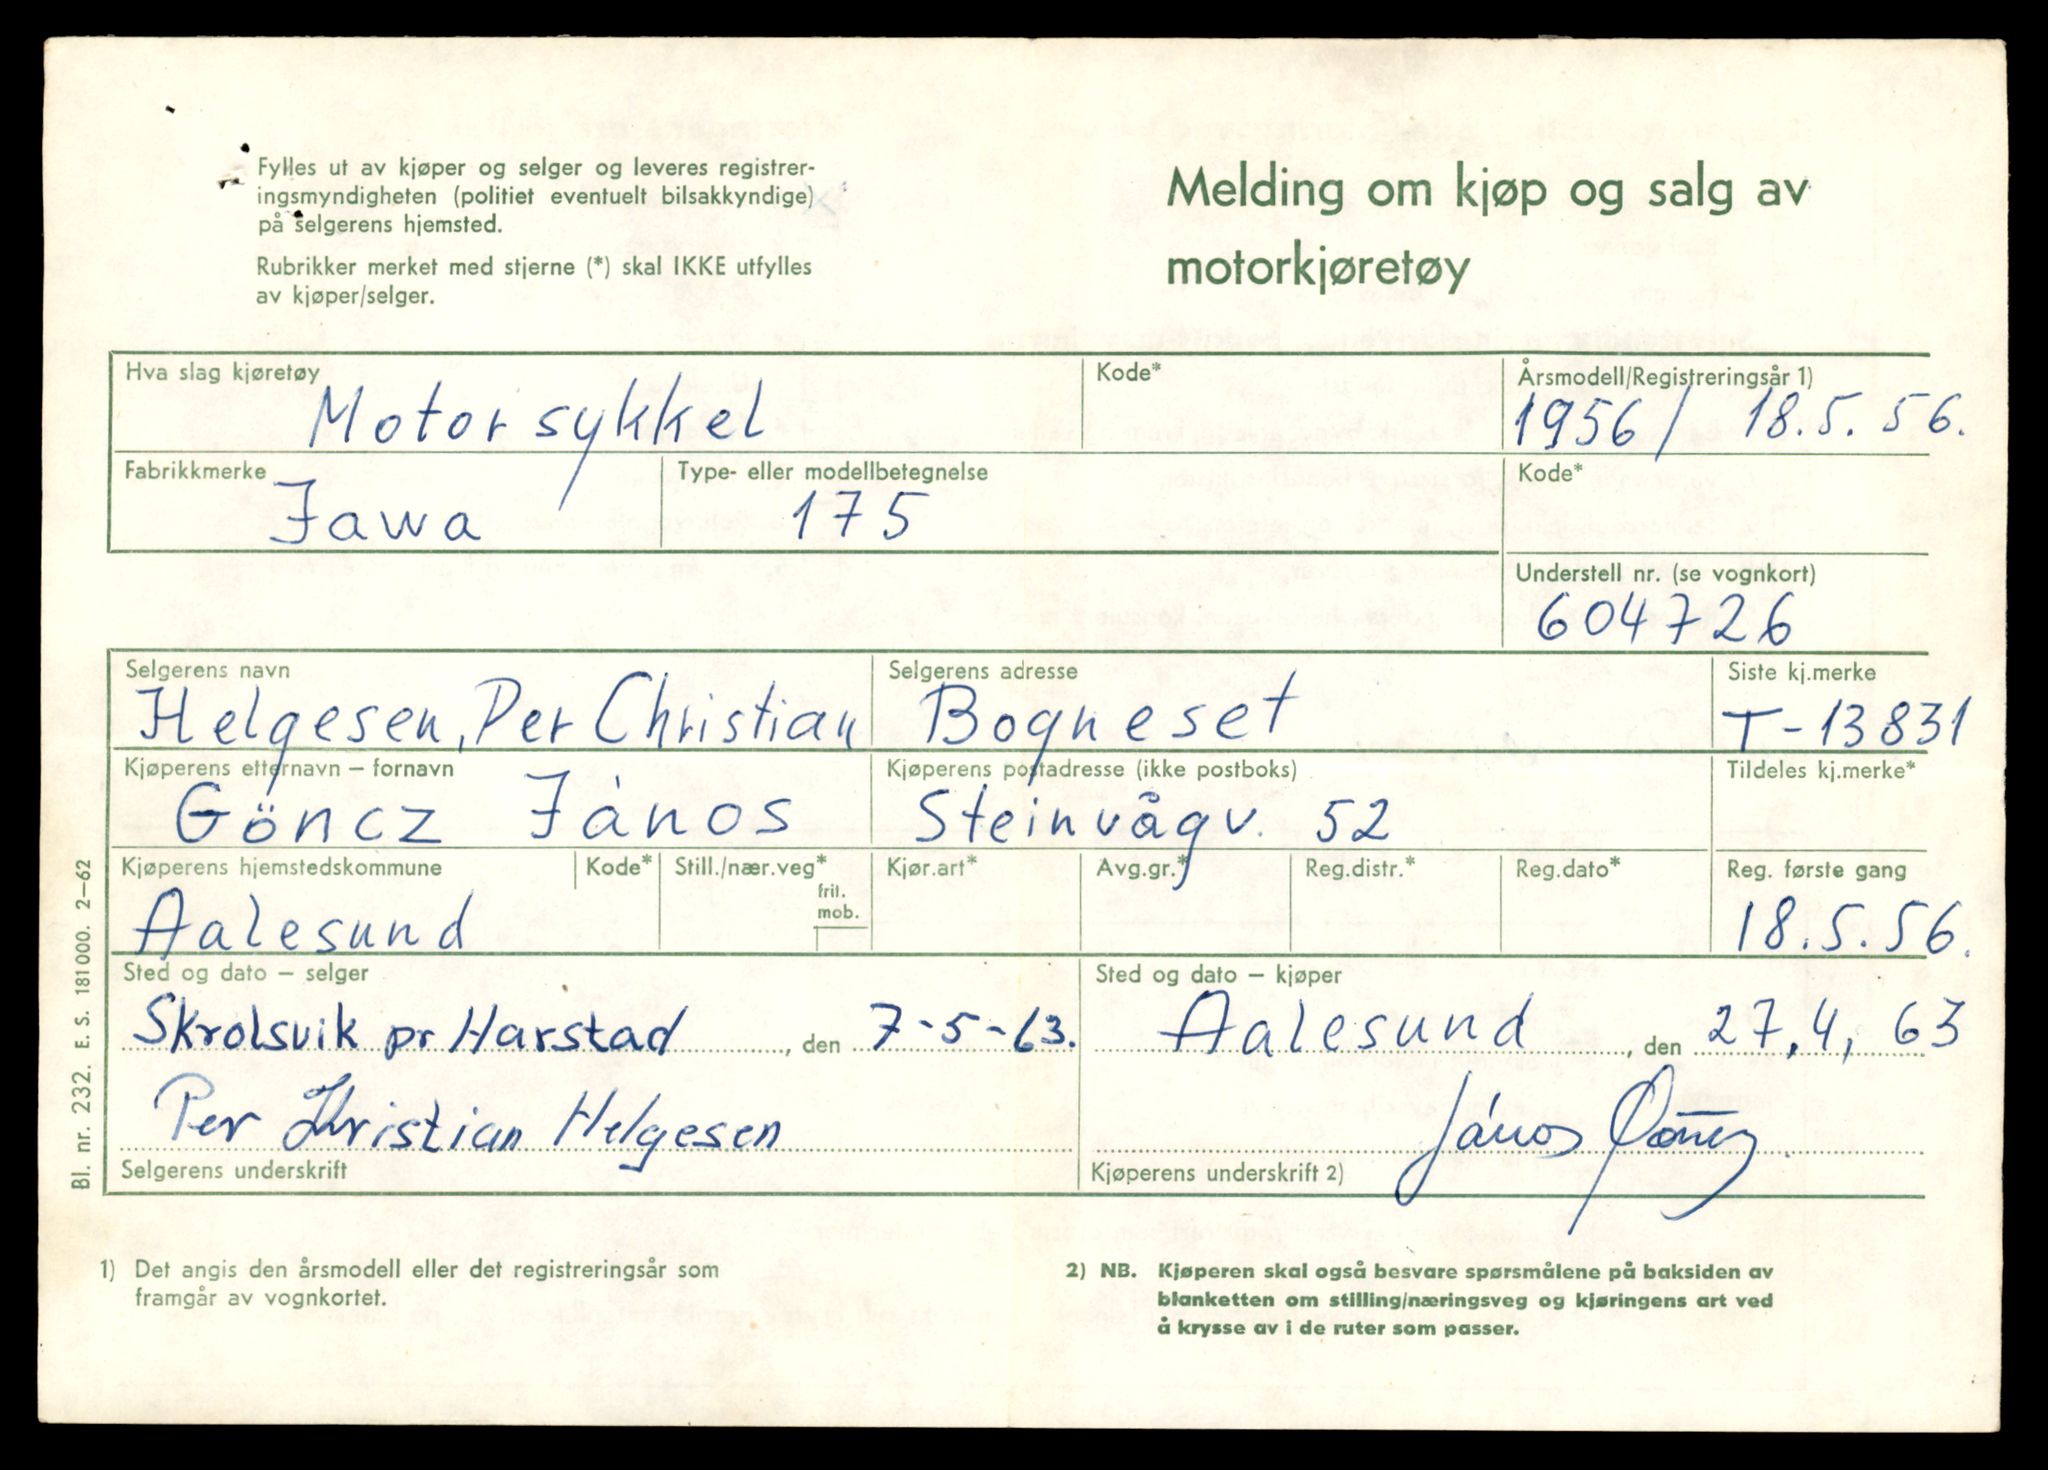 Fylles ut av kjøper og selger og leveres registrer-
ingsmyndigheten (politiet eventuelt bilsakkyndige)
på selgerens hjemsted.
Rubrikker merket med stjerne (*) skal IKKE utfylles
av kjøper/selger.
Melding om kjøp og salg av
motorkjøretøy
Hva slag kjøretøy
Motorsykkel
Kode*
Årsmodell/Registreringsår 1)
1956 / 18.5.56.
Fabrikkmerke
Jawa
Type- eller modellbetegnelse
175
Kode*
Understell nr. (se vognkort)
604726
Selgerens navn
Helgesen, Per Christian
Selgerens adresse
Bogneset
Siste kj.merke
T-13831
Kjøperens etternavn – fornavn
Göncz János
Kjøperens postadresse (ikke postboks)
Steinvågv. 52
Tildeles kj.merke*
Kjøperens hjemstedskommune
Aalesund
Kode*
Still./nær.veg*
fril.
mob.
Kjør.art*
Avg.gr.*
Reg.distr.*
Reg.dato*
Reg. første gang
18.5.56.
Sted og dato – selger
Skrolsvik pr Harstad, den 7-5-63.
Per Khristian Helgesen
Selgerens underskrift
Sted og dato – kjøper
Aalesund, den 27.4, 63
János Göncz
Kjøperens underskrift 2)
Bl. nr. 232. E. S. 181000. 2–62
1) Det angis den årsmodell eller det registreringsår som
framgår av vognkortet.
2) NB. Kjøperen skal også besvare spørsmålene på baksiden av
blanketten om stilling/næringsveg og kjøringens art ved
å krysse av i de ruter som passer.